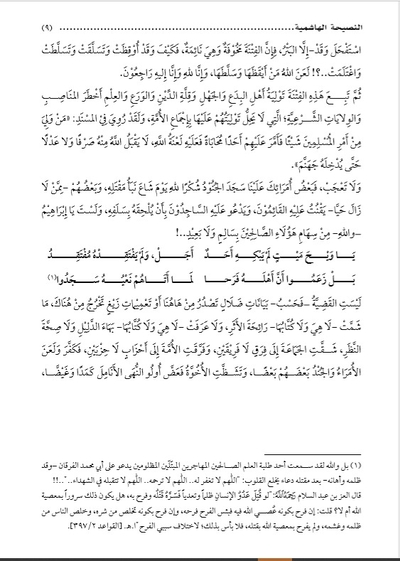 النصيحة الهاشمية ........................................ (٩)
اسْتَفْحَلَ وَقَدْ-إِلَّا البَتْرُ، فَإِنَّ الفِتْنَةَ مَخُوفَةٌ وَهِيَ نَائِمَةٌ، فَكَيْفَ وَقَدْ أُوقِظَتْ وَتَسَلَّقَتْ وَتَسَلَّطَتْ
وَاغْتَلَمَتْ..؟! لَعَنَ اللهُ مَنْ أَيْقَظَهَا وَسَلَّطَهَا، وَإِنَّا لِلهِ وَإِنَّا إِلَيْهِ رَاجِعُونَ.
ثُمَّ تَبِعَ هَذِهِ الفِتْنَةَ تَوْلِيَةُ أَهْلِ البِدَعِ وَالجَهْلِ وَقِلَّةِ الدِّينِ وَالوَرَعِ وَالعِلْمِ أَخْطَرَ المَنَاصِبِ
وَالوِلَايَاتِ الشَّرْعِيَّةِ؛ الَّتِي لَا تَحِلُّ تَوْلِيَتُهُمْ عَلَيْهَا بِإِجْمَاعِ الأُمَّةِ، وَلَقَدْ رُوِيَ فِي المُسْنَدِ: «مَنْ وَلِيَ
مِنْ أَمْرِ المُسْلِمِينَ شَيْئًا فَأَمَّرَ عَلَيْهِمْ أَحَدًا مُحَابَاةً فَعَلَيْهِ لَعْنَةُ اللهِ، لَا يَقْبَلُ اللهُ مِنْهُ صَرْفًا وَلَا عَدْلًا
حَتَّى يُدْخِلَهُ جَهَنَّمَ».
وَلَا تَعْجَبْ، فَبَعْضُ أُمَرَائِكَ عَلَيْنَا سَجَدَ الجُنُودُ شُكْرًا لِلهِ يَوْمَ شَاعَ نَبَأُ مَقْتَلِهِ، وَبَعْضُهُمْ -مِمَّنْ لَا
زَالَ حَيًّا- يَقْنُتُ عَلَيْهِ القَائِمُونَ، وَيَدْعُو عَلَيْهِ السَّاجِدُونَ بِأَنْ يُلْحِقَهُ بِسَلَفِهِ، وَلَسْتَ يَا إِبْرَاهِيمُ
-وَاللهِ- مِنْ سِهَامِ هَؤُلَاءِ الصَّالِحِينَ بِسَالِمٍ وَلَا بَعِيدٍ..!
يَا وَيْحَ مَيْتٍ لَمْ يَبْكِهِ أَحَدٌ أَجَلْ، وَلَمْ يَفْتَقِدْهُ مُفْتَقِدُ
بَلْ زَعَمُوا أَنَّ أَهْلَهُ فَرَحًا لَمَّا أَتَاهُمْ نَعْيُهُ سَجَدُوا(١)
لَيْسَتِ القَضِيَّةُ -فَحَسْبُ- بَيَانَاتِ ضَلَالٍ تَصْدُرُ مِنْ هَاهُنَا أَوْ تَعْمِيمَاتِ زَيْغٍ تَخْرُجُ مِنْ هُنَاكَ، مَا
شَمَّتْ -لَا هِيَ وَلَا كُتَّابُهَا- رَائِحَةَ الأَثَرِ، وَلَا عَرَفَتْ -لَا هِيَ وَلَا كُتَّابُهَا- بَهَاءَ الدَّلِيلِ وَلَا صِحَّةَ
النَّظَرِ، شَقَّتِ الجَمَاعَةَ إِلَى فِرَقٍ لَا فَرِيقَيْنِ، وَفَرَّقَتِ الأُمَّةَ إِلَى أَحْزَابٍ لَا حِزْبَيْنِ، فَكَفَّرَ وَلَعَنَ
الأُمَرَاءُ وَالجُنْدُ بَعْضُهُمْ بَعْضًا، وَتَشَظَّتِ الأُخُوَّةُ فَعَضَّ أُولُو النُّهَى الأَنَامِلَ كَمَدًا وَغَيْضًا،
(١) بل والله لقد سمعت أحد طلبة العلم الصالحين المهاجرين المبتّلين المظلومين يدعو على أبي محمد الفرقان -وقد
ظلمه وأهانه- بعد مقتله دعاء يخلع القلوب: "اللّهم لا تغفر له.. اللّهم لا ترحمه.. اللّهم لا تتقبله في الشهداء.."..!!
قال العز بن عبد السلام رَحِمَهُ اللَّهُ: "لو قُتِلَ عَدُوُّ الإنسانِ ظلماً وتعدياً فَسَرَّهُ قَتْلُه وفرح به، هل يكون ذلك سروراً بمعصية
الله أم لا؟ قلت: إن فرح بكونه عُصي الله فيه فبئس الفرح فرحه، وإن فرح بكونه تخلص من شره، وخلص الناس من
ظلمه وغشمه، ولم يفرح بمعصية الله بقتله، فلا بأس بذلك؛ لاختلاف سببي الفرح".ا.هـ. [القواعد ٣٩٧/٢]